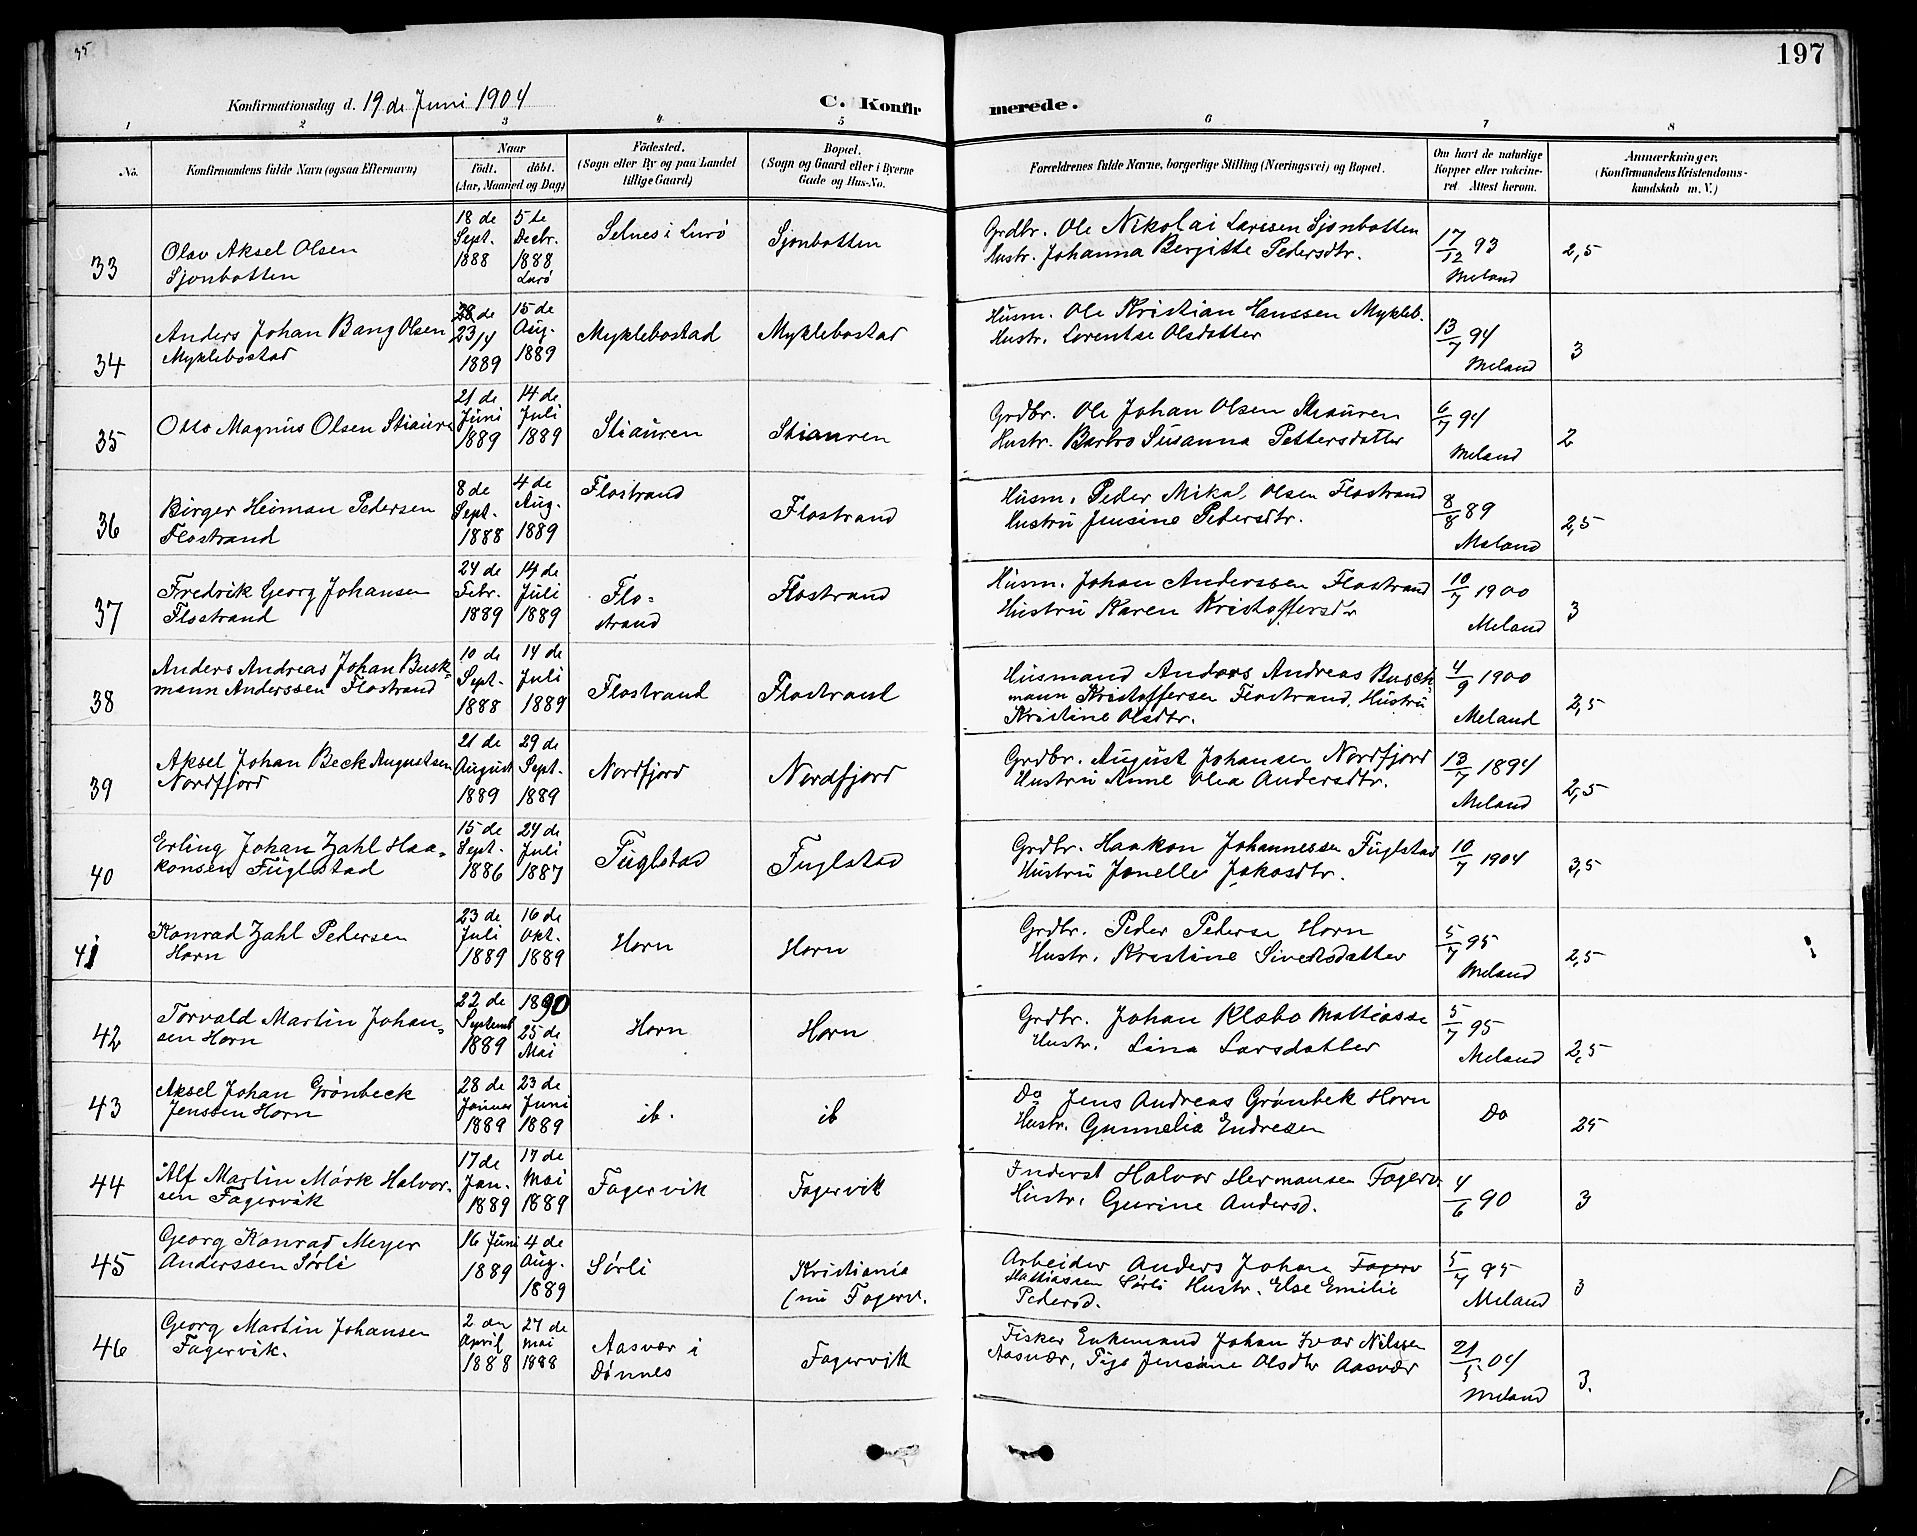 35
197
Konfirmationsdag d. 19 de Juni 1904
C. Konfirmerede.
1 2 3 4 5 6 7 8
No.
Konfirmandens fulde Navn (ogsaa Efternavn)
Naar
födt. döbt.
(Aar, Maaned og Dag)
Födested.
(Sogn eller By og paa Landet
tillige Gaard)
Bopæl.
(Sogn og Gaard eller i Byerne
Gade og Hus-No.
Forældrenes fulde Navne, borgerlige Stilling (Næringsvei) og Bopæl.
Om havt de naturlige
Kopper eller vakcine-
ret Attest herom.
Anmærkninger.
(Konfirmandens Kristendoms-
kundskab m. V.)
33
Olav Aksel Olsen
Sjonbotten
18 de
Sept.
1888
5 te
Decbr.
1888
Lurø
Selnes i Lurø
Sjonbotten
Grdbr. Ole Nikolai Larssen Sjonbotten
Hustr. Johanna Bergitte Pedersdtr.
17/12 93
Meland
2,5
34
Anders Johan Bang Olsen
Myklebostad
28 de
23/4
1889
15 de
Aug.
1889
Myklebostad
Myklebostad
Husm. Ole Kristian Hanssen Mykleb.
Hustr. Lorentse Olsdatter
13/7 94
Meland
3
35
Otto Magnus Olsen Stiaure
21 de
Juni
1889
14 de
Juli
1889
Stiauren
Stiauren
Grdbr. Ole Johan Olsen Stiauren
Hustr. Barbro Susanna Pettersdatter
6/7 94
Meland
2
36
Birger Heiman Pedersen
Flostrand
8 de
Sept.
1888
4 de
Aug.
1889
Flostrand
Flostrand
Husm. Peder Mikal Olsen Flostrand
Hustru Jensine Pedersdtr.
8/8 89
Meland
2,5
37
Fredrik Georg Johansen
Flostrand
24 de
Febr.
1889
14 de
Juli
1889
Flo-
strand
Flostrand
Husm. Johan Anderssen Flostrand
Hustru Karen Kristoffersdtr
10/7 1900
Meland
3
38
Anders Andreas Johan Busk-
mann Anderssen Flostrand
10 de
Sept.
1888
14 de
Juli
1889
Flostrand
Flostrand
Husmand Anders Andreas Busch
mann Kristoffersen Flostrand, Hustru
Kristine Olsdtr.
4/9 1900
Meland
2,5
39
Aksel Johan Beck Augustsen
Nordfjord
21 de
August
1889
29 de
Sept.
1889
Nordfjord
Nordfjord
Grdbr. August Johansen Nordfjord
Hustru Anne Olea Andersdtr.
13/7 1894
Meland
2,5
40
Erling Johan Zahl Haa-
konsen Fuglstad
15 de
Sept.
1886
24 de
Juli
1887
Fuglstad
Fuglstad
Grdbr. Haakon Johannessen Fuglstad
Hustru Jonelle Jakosdtr.
10/7 1904
3,5
41
Konrad Zahl Pedersen
Horn
23 de
Juli
1889
16 de
Okt.
1889
Horn
Horn
Grdbr. Peder Pederse Horn
Hustr. Kristine Sivertsdatter
5/7 95
Meland
2,5
42
Torvald Martin Johan-
sen Horn
22 de
Septemb
1889
1890
25 de
Mai
Horn
Horn
Grdbr. Johan Klæbo Mattiasse
Hustr. Lina Larsdatter
5/7 95
Meland
2,5
43
Aksel Johan Grønbeck
Jenssen Horn
28 de
Januar
1889
23 de
Juni
1889
ib.
ib
Do Jens Andreas Grønbek Horn
Hustr. Gunnelia Endresen
Do
25
44
Alf Martin Mørk Halvor-
sen Fagervik
17 de
Jan.
1889
17 de
Mai
1889
Fagervik
Fagervik
Inderst Halvor Hermansen Fagerv
Hustr. Gurine Andersd.
4/6 90
3
45
Georg Konrad Meyer
Anderssen Sørli
16 Juni
1889
4 de
Aug.
1889
Sørli
Kristiania
(nu Fagerv.
Arbeider Anders Johan Fagerv
Mattiassen Sørli Hustr. Else Emilie
Pedersd.
5/7 95
Meland
3
46
Georg Martin Johansen
Fagervik.
2 den
April
1888
27 de
Mai
1888
Aasvær i
Dønnes
Fagervik
Fisker Enkemand Johan Ivar Nilssen
Aasvær, Pige Jensine Olsdtr Aasvær
21/5 04
Meland
3.